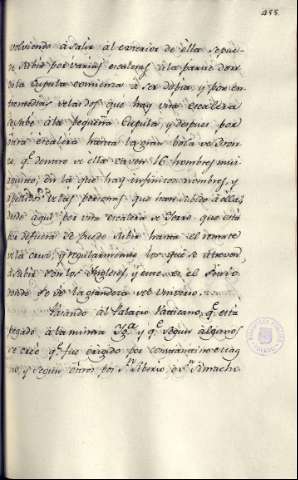 455.
volviendo à salir al exterior de ella se pue-
de subir por varias escaleras à la parte donde
la Cupula comienza à ser doble, y por en-
tremedias de las dos que hay una escalera
se sube à la pequeña Cupula, y despues por
otra escalera hasta la gran bola de bron-
ce, qᵉ dentro de ella caven 16 hombres mui
que hay infinitos nombres, y
de las personas que han subido à ella,
desde aqui por otra escalera de fierro que está
por defuera se puede subir hasta el remate
de la cruz, y regularmente los que se atreven
à subir son los Ingleses, y este es el
de la grandeza del Universo.
Pasando al Palacio Vaticano, qᵉ está
pegado à la misma Igᵃ y qᵉ segun algunos
se cree qᵉ fue erigido por constantino el mag
no, y segun otros por Sⁿ Liberio, ò Sⁿ Simacho